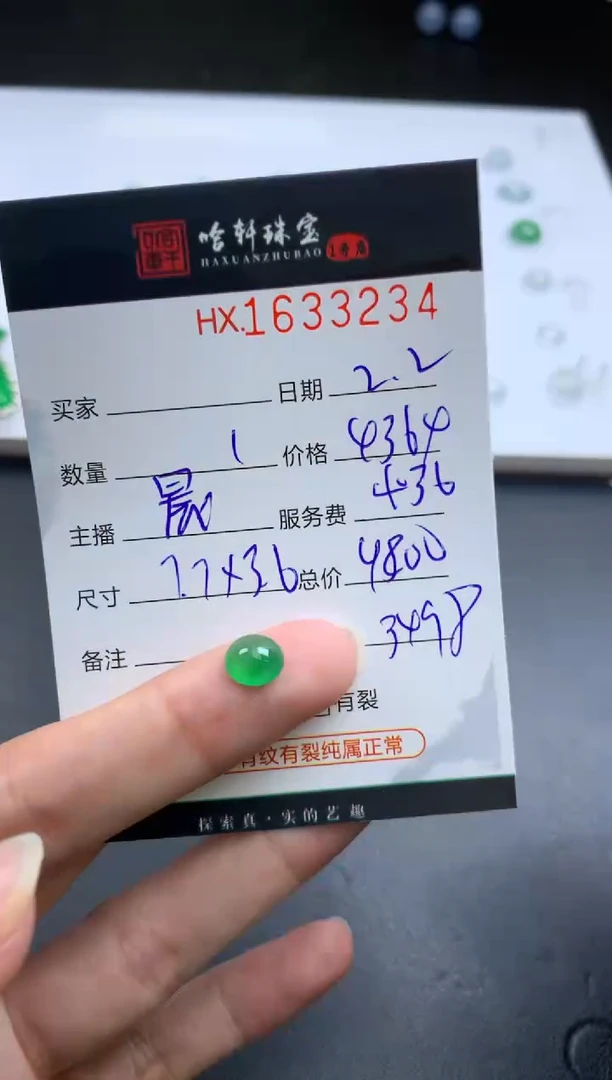 哈轩珠宝 1号店
HAXUANZHUBAO
HX.1633234
买家 日期 2.2
数量 1 价格 4364
主播 晨 服务费 436
尺寸 7.7×3.6 总价 4800
备注 3498
有裂
有纹有裂纯属正常
探索真·实的艺趣